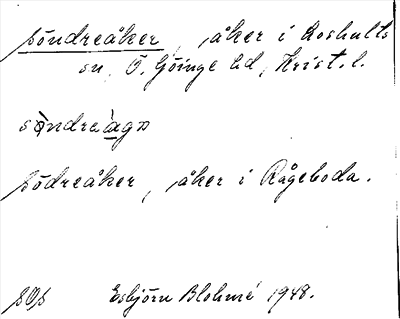 söndreåker, åker i Loshults
sn, Ö. Göinge hd, Krist. l.
södreåker, åker i Rågeboda.
Esbjörn Blohmé 1948.